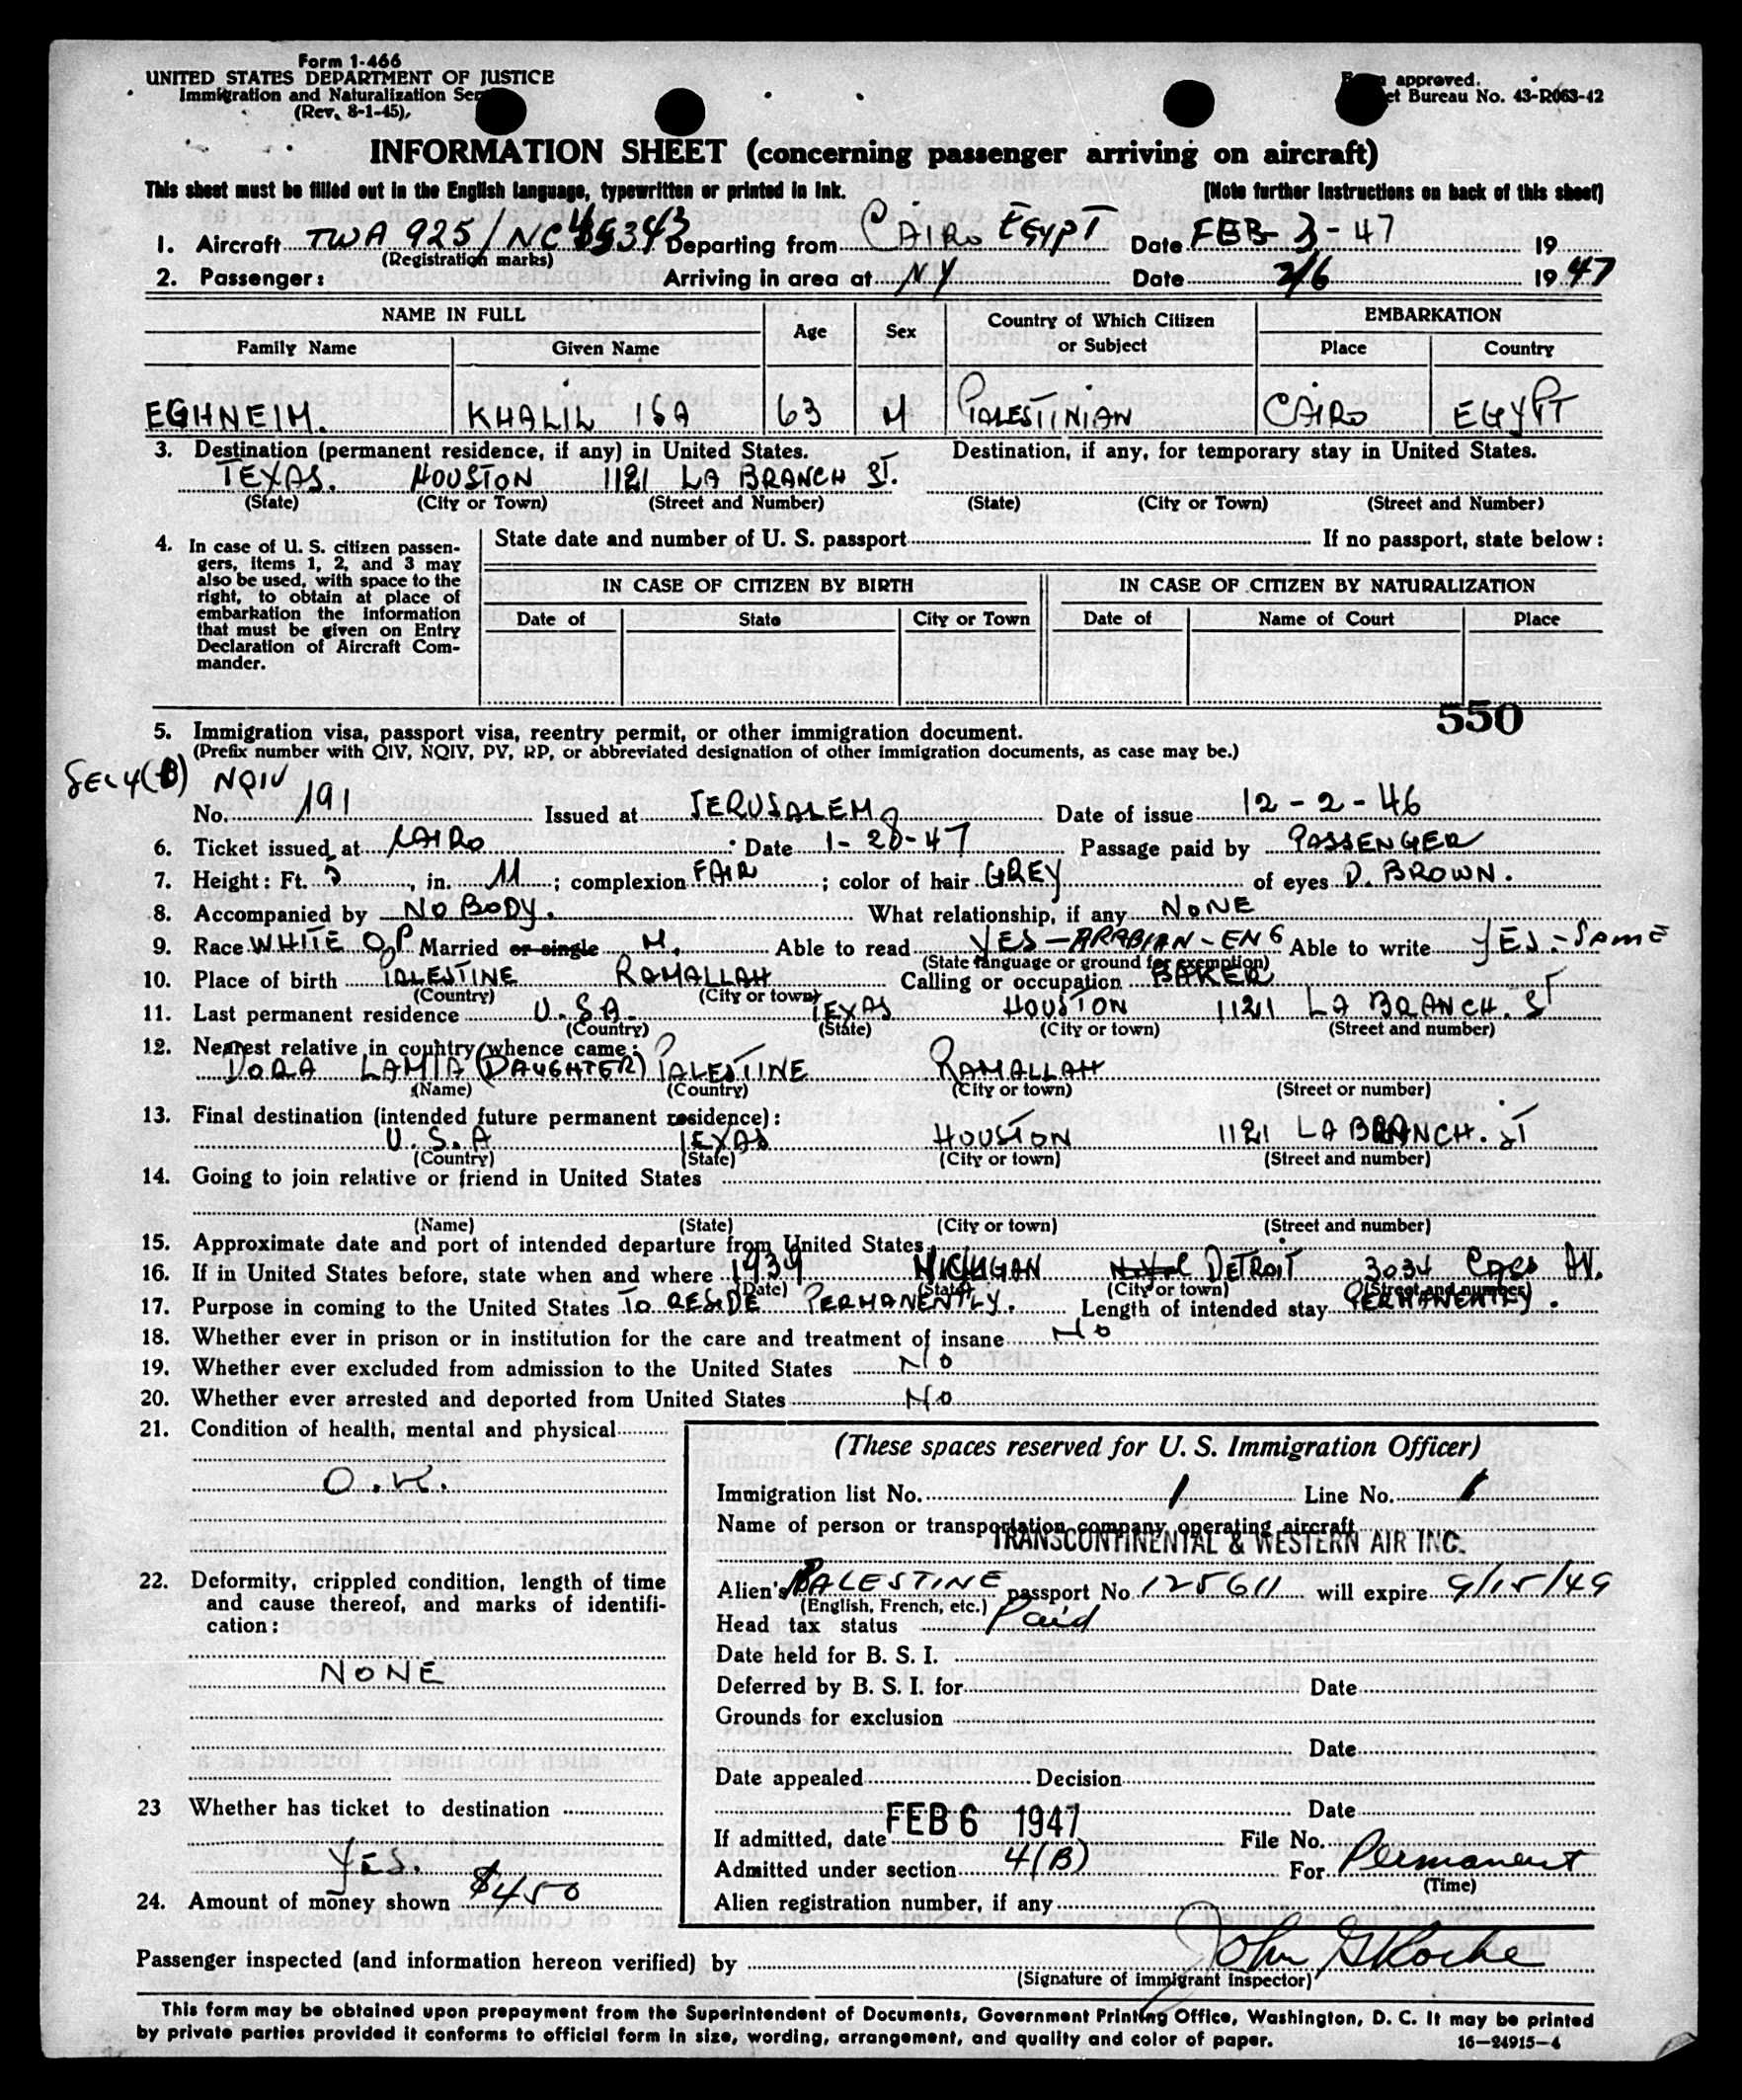 Form 1-466
UNITED STATES DEPARTMENT OF JUSTICE
Immigration and Naturalization
(Rev. 8-1-45)
approved.
Bureau No. 43-R063-42
INFORMATION SHEET (concerning passenger arriving on aircraft)
This sheet must be filled out in the English language, typewritten or printed in ink. (Note further instructions on back of this sheet)
1. Aircraft TWA 925/NC Departing from CAIRO EGYPT Date FEB- 3 - 47 19
(Registration marks)
2. Passenger: Arriving in area at NY Date 2/6 1947
NAME IN FULL Age Sex Country of Which Citizen or Subject EMBARKATION
Family Name Given Name Place Country
EGHNEIM. KHALIL ISA 63 M PALESTINIAN CAIRO EGYPT
3. Destination (permanent residence, if any) in United States. Destination, if any, for temporary stay in United States.
TEXAS. HOUSTON 1121 LA BRANCH ST.
(State) (City or Town) (Street and Number) (State) (City or Town) (Street and Number)
4. In case of U. S. citizen passen-
gers, items 1, 2, and 3 may
also be used, with space to the
right, to obtain at place of
embarkation the information
that must be given on Entry
Declaration of Aircraft Com-
mander.
State date and number of U. S. passport If no passport, state below:
IN CASE OF CITIZEN BY BIRTH IN CASE OF CITIZEN BY NATURALIZATION
Date of State City or Town Date of Name of Court Place
550
5. Immigration visa, passport visa, reentry permit, or other immigration document.
(Prefix number with QIV, NQIV, PV, RP, or abbreviated designation of other immigration documents, as case may be.)
SEC 4(B) NQIV
No. 191 Issued at JERUSALEM Date of issue 12 - 2 - 46
6. Ticket issued at CAIRO Date 1- 28-47 Passage paid by PASSENGER
7. Height: Ft. 5, in. 11; complexion FAIR; color of hair GREY of eyes D. BROWN.
8. Accompanied by NOBODY. What relationship, if any NONE
9. Race WHITE Married or single M. Able to read YES - ARABIAN - ENG Able to write YES. - SAME
(State language or ground for exemption)
10. Place of birth PALESTINE RAMALLAH Calling or occupation BAKER
(Country) (City or town)
11. Last permanent residence U.S.A. TEXAS HOUSTON 1121 LA BRANCH. ST
(Country) (State) (City or town) (Street and number)
12. Nearest relative in country whence came:
DORA LAMIA (DAUGHTER) PALESTINE RAMALLAH
(Name) (Country) (City or town) (Street or number)
13. Final destination (intended future permanent residence):
U.S.A TEXAS HOUSTON 1121 LA BRANCH. ST
(Country) (State) (City or town) (Street and number)
14. Going to join relative or friend in United States
(Name) (State) (City or town) (Street and number)
15. Approximate date and port of intended departure from United States
16. If in United States before, state when and where 1939 MICHIGAN DETROIT 3034 Cass AV.
(Date) (State) (City or town) (Street and number)
17. Purpose in coming to the United States TO RESIDE PERMANENTLY. Length of intended stay PERMANENTLY.
18. Whether ever in prison or in institution for the care and treatment of insane NO
19. Whether ever excluded from admission to the United States NO
20. Whether ever arrested and deported from United States NO
21. Condition of health, mental and physical
O.K.
22. Deformity, crippled condition, length of time
and cause thereof, and marks of identifi-
cation:
NONE
23 Whether has ticket to destination
YES.
24. Amount of money shown $450
(These spaces reserved for U. S. Immigration Officer)
Immigration list No. 1 Line No. 1
Name of person or transportation company operating aircraft
TRANSCONTINENTAL & WESTERN AIR INC.
Alien's PALESTINE passport No 125611 will expire 9/15/49
(English, French, etc.)
Head tax status Paid
Date held for B. S. I.
Deferred by B. S. I. for Date
Grounds for exclusion
Date
Date appealed Decision
Date
If admitted, date FEB 6 1947 File No.
Admitted under section 4(B) For Permanent
(Time)
Alien registration number, if any
Passenger inspected (and information hereon verified) by John G Roche
(Signature of immigrant inspector)
This form may be obtained upon prepayment from the Superintendent of Documents, Government Printing Office, Washington, D. C. It may be printed
by private parties provided it conforms to official form in size, wording, arrangement, and quality and color of paper. 16—24915-4